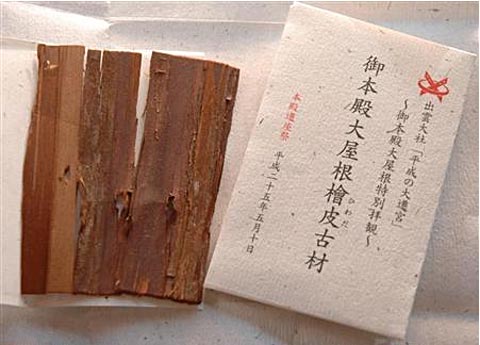 出雲大社「平成の大遷宮」
～御本殿大屋根特別拝観～
御本殿大屋根檜皮古材
ひわだ
本殿遷座祭 平成二十五年五月十日